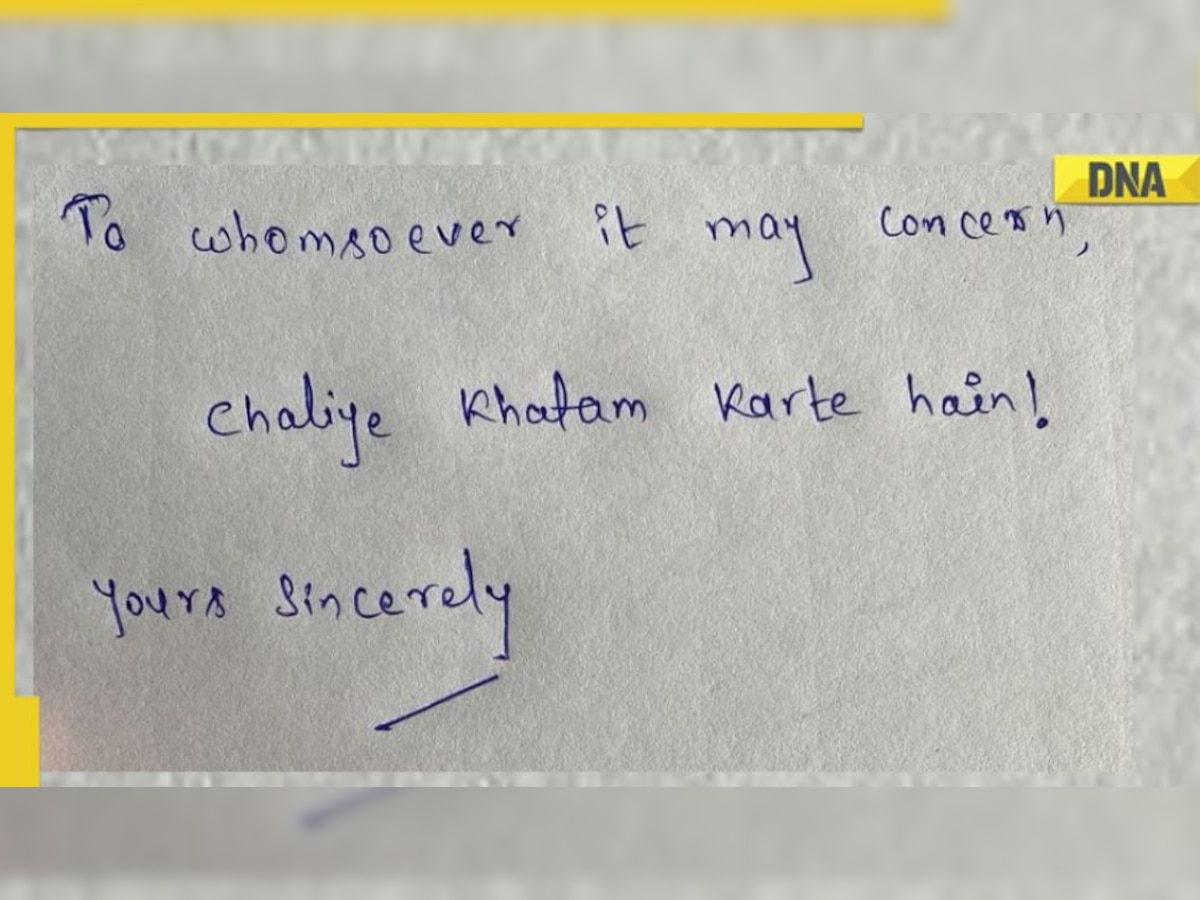 DNA
To whomsoever it may concern,
Chaliye Khatam Karte hain!
Yours Sincerely